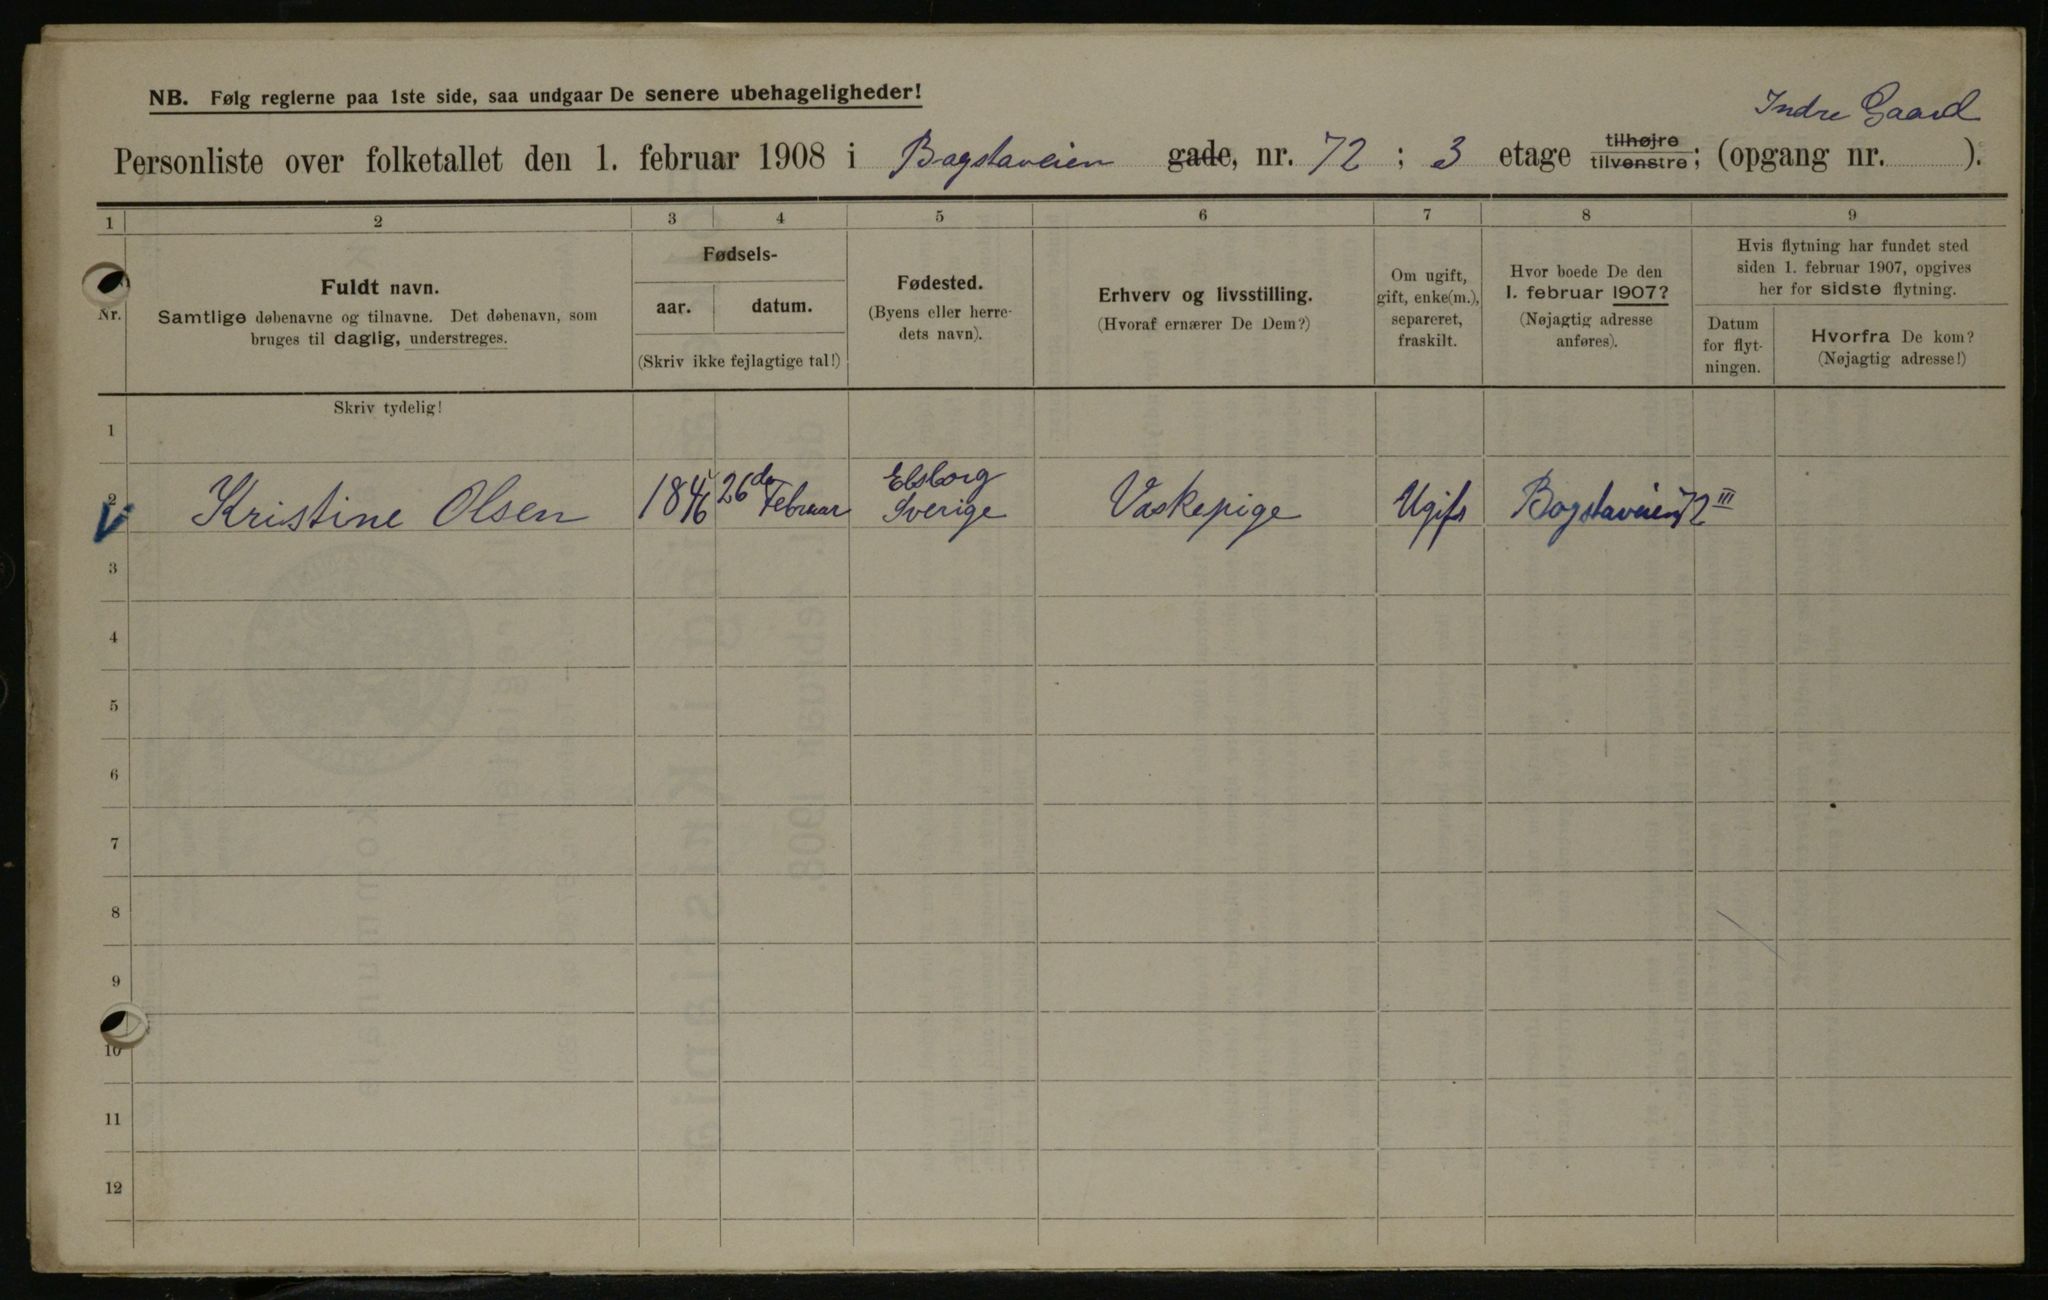 NB. Følg reglerne paa 1ste side, saa undgaar De senere ubehageligheder!
Indre Gaard
Personliste over folketallet den 1. februar 1908 i Bogstaveien gade, nr. 72 ; 3 etage tilhøjre tilvenstre; (opgang nr. ).
1 2 3 4 5 6 7 8 9
Nr.
Fuldt navn.
Samtlige døbenavne og tilnavne. Det døbenavn, som
bruges til daglig, understreges.
Fødsels-
aar. datum.
(Skriv ikke fejlagtige tal!)
Fødested.
(Byens eller herre-
dets navn).
Erhverv og livsstilling.
(Hvoraf ernærer De Dem?)
Om ugift,
gift, enke(m.),
separeret,
fraskilt.
Hvor boede De den
1. februar 1907?
(Nøjagtig adresse
anføres).
Hvis flytning har fundet sted
siden 1. februar 1907, opgives
her for sidste flytning.
Datum
for flyt-
ningen.
Hvorfra De kom?
(Nøjagtig adresse!)
Skriv tydelig!
1
2 Kristine Olsen 1846 26de Februar Elsborg Sverige Vaskepige Ugift Bogstaveien 72 III
3
4
5
6
7
8
9
10
11
12